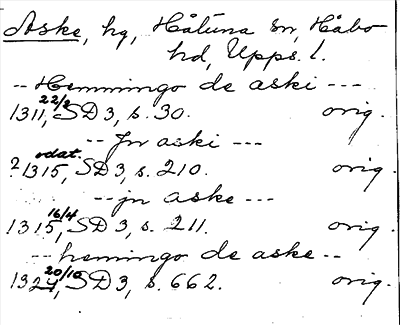 Aske, hg, Håtuna sn, Håbo
hd, Upps. l.
-- Hemmingo de aski ---
1311, 22/2 SD 3, s. 30. orig.
-- Jn aski ---
? 1315, odat. SD 3, s. 210. orig.
-- jn aske ---
1315, 16/4 SD 3, s. 211. orig.
-- hemingo de aske --
1324, 20/10 SD 3, s. 662. orig.